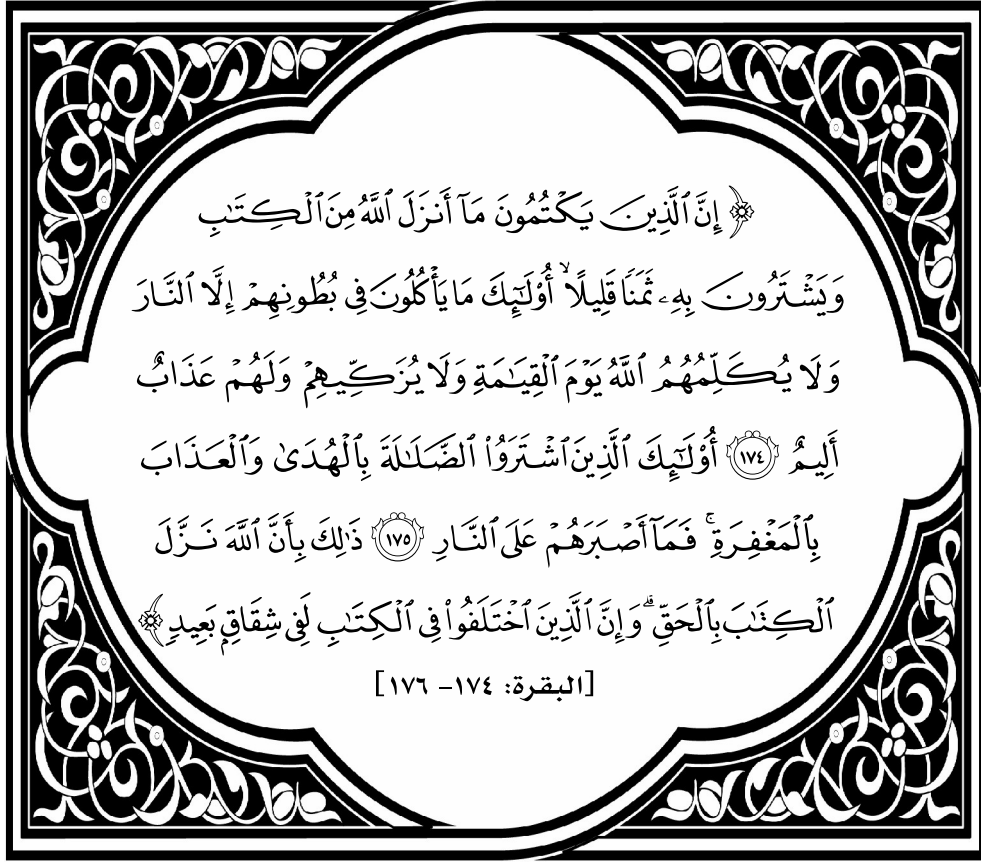 ﴿ إِنَّ ٱلَّذِينَ يَكۡتُمُونَ مَآ أَنزَلَ ٱللَّهُ مِنَ ٱلۡكِتَٰبِ
وَيَشۡتَرُونَ بِهِۦ ثَمَنٗا قَلِيلًا ۙ أُوْلَٰٓئِكَ مَا يَأۡكُلُونَ فِي بُطُونِهِمۡ إِلَّا ٱلنَّارَ
وَلَا يُكَلِّمُهُمُ ٱللَّهُ يَوۡمَ ٱلۡقِيَٰمَةِ وَلَا يُزَكِّيهِمۡ وَلَهُمۡ عَذَابٌ
أَلِيمٌ ١٧٤ أُوْلَٰٓئِكَ ٱلَّذِينَ ٱشۡتَرَوُاْ ٱلضَّلَٰلَةَ بِٱلۡهُدَىٰ وَٱلۡعَذَابَ
بِٱلۡمَغۡفِرَةِۚ فَمَآ أَصۡبَرَهُمۡ عَلَى ٱلنَّارِ ١٧٥ ذَٰلِكَ بِأَنَّ ٱللَّهَ نَزَّلَ
ٱلۡكِتَٰبَ بِٱلۡحَقِّۗ وَإِنَّ ٱلَّذِينَ ٱخۡتَلَفُواْ فِي ٱلۡكِتَٰبِ لَفِي شِقَاقِۭ بَعِيدٖ ﴾
[البقرة: ١٧٤- ١٧٦]